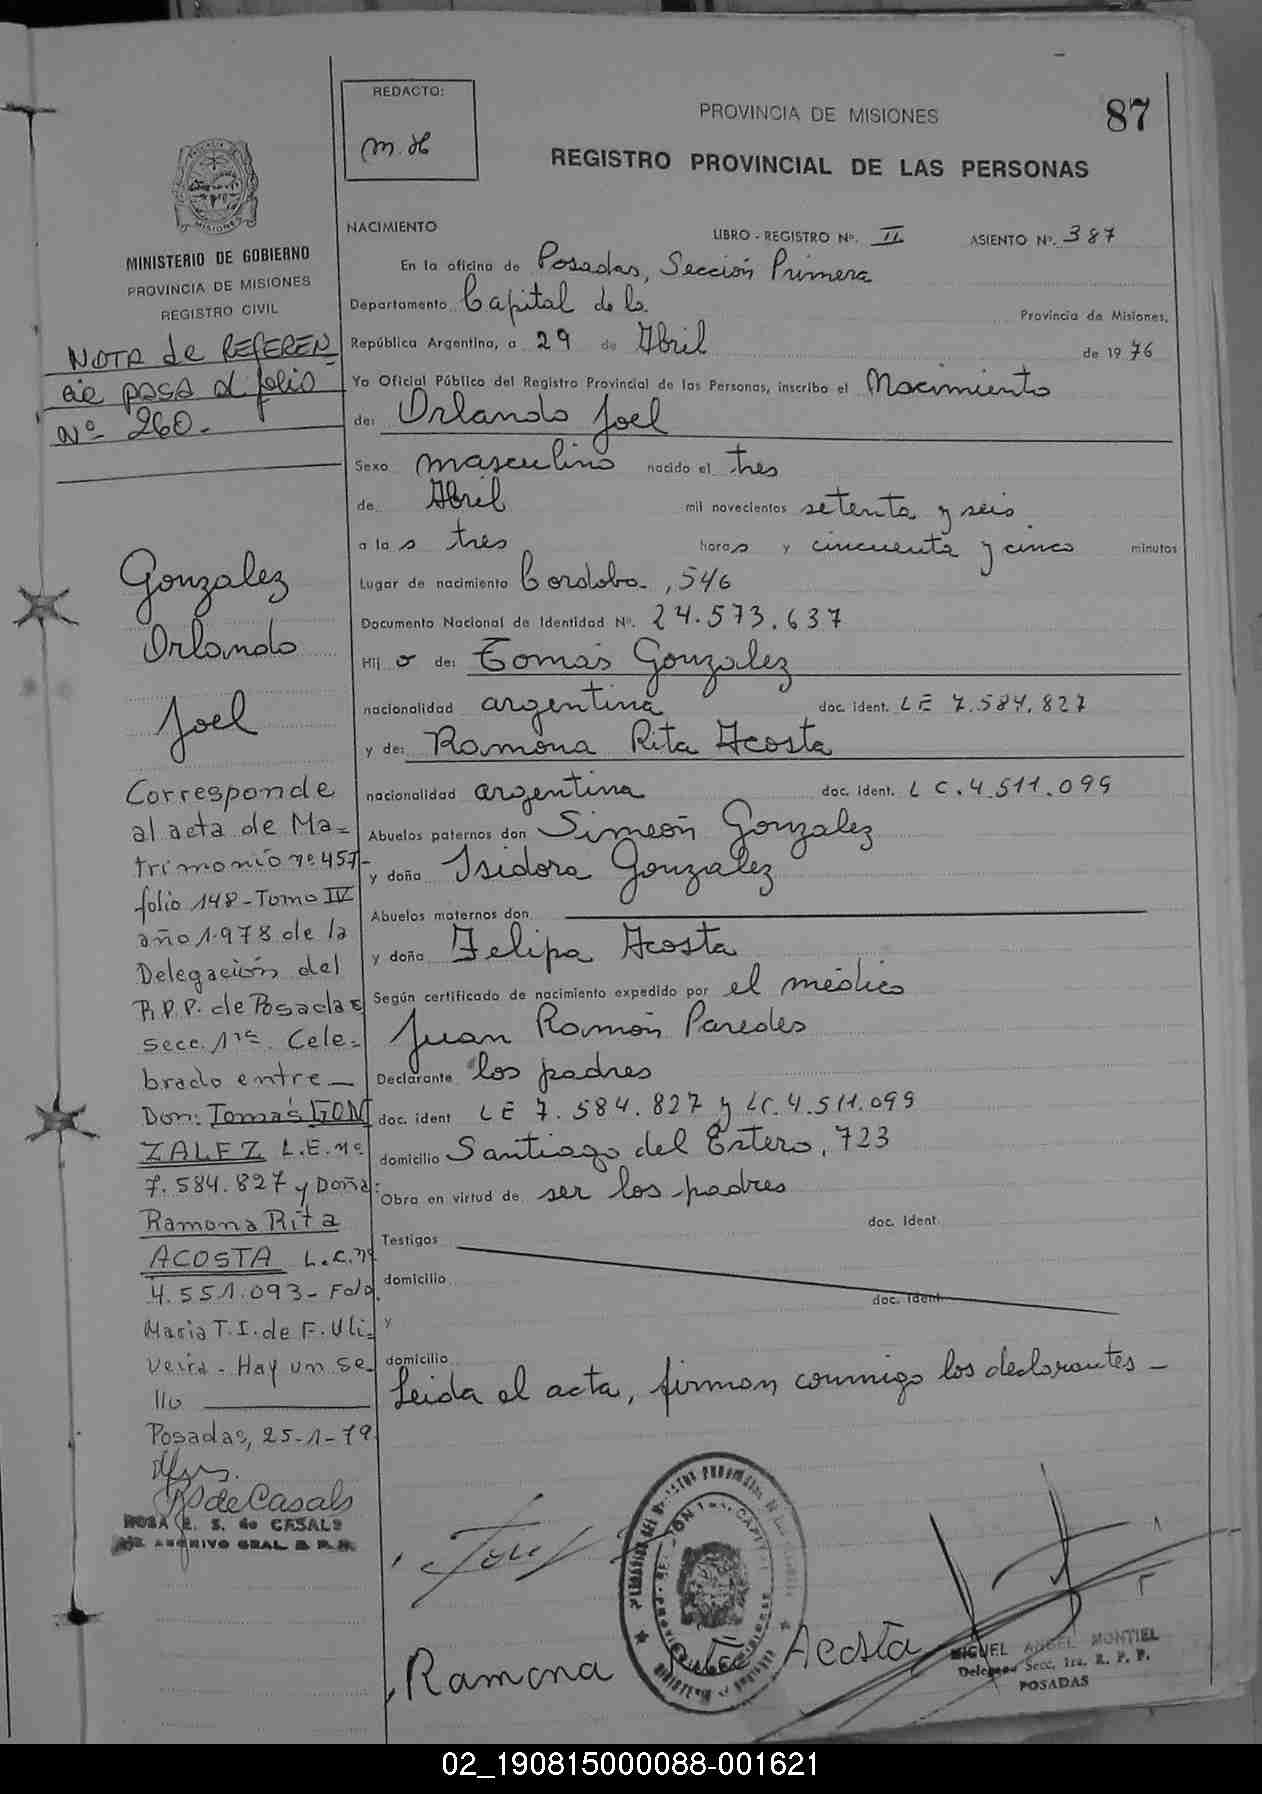 REDACTO:
m. H
PROVINCIA DE MISIONES
87
REGISTRO PROVINCIAL DE LAS PERSONAS
MISIONES
MINISTERIO DE GOBIERNO
PROVINCIA DE MISIONES
REGISTRO CIVIL
NOTA de REFEREN
cie pasa al folio
Nº 260.-
Gonzalez
Orlando
Joel
Corresponde
al acta de Ma=
trimonio nº 457-
folio 148-Tomo IV
año 1.978 de la
Delegación del
R.P.P. de Posadas
secc. 1ra. Cele=
brado entre —
Don: Tomás GON
ZALEZ L.E. nº
7.584.827 y Doña:
Ramona Rita
ACOSTA L.C. nº
4.551.093 - Fdo.
Maria T. I. de F. Uli=
veira - Hay un se-
llo
Posadas, 25-1-79.
de Casals
ROSA E. S. de CASALS
ARCHIVO GRAL. R. P. P.
NACIMIENTO LIBRO - REGISTRO Nº. II ASIENTO Nº. 387
En la oficina de Posadas, Sección Primera
Departamento Capital de la Provincia de Misiones,
República Argentina, a 29 de Abril de 1976
Yo Oficial Público del Registro Provincial de las Personas, inscribo el Nacimiento
de: Orlando Joel
Sexo masculino nacido el tres
de Abril mil novecientos setenta y seis.
a las tres horas y cincuenta y cinco minutos
Lugar de nacimiento Cordoba, 546
Documento Nacional de Identidad Nº. 24.573.637
Hijo de: Tomás Gonzalez
nacionalidad argentina doc. ident. LE 7.584.827
y de: Ramona Rita Acosta
nacionalidad argentina doc. ident. LC. 4.511.099
Abuelos paternos don Simeón Gonzalez
y doña Isidora Gonzalez
Abuelos maternos don
y doña Felipa Acosta
Según certificado de nacimiento expedido por el médico
Juan Ramón Paredes
Declarante los padres
doc. ident LE 7.584.827 y LC. 4.511.099
domicilio Santiago del Estero, 723
Obra en virtud de ser los padres
doc. ident.
Testigos
domicilio
doc. ident.
y
domicilio
Leida el acta, firman conmigo los declarantes -
Ramona Rita Acosta
MIGUEL ANGEL MONTIEL
Delegado Secc. 1ra. R. P. P.
POSADAS
02_190815000088-001621